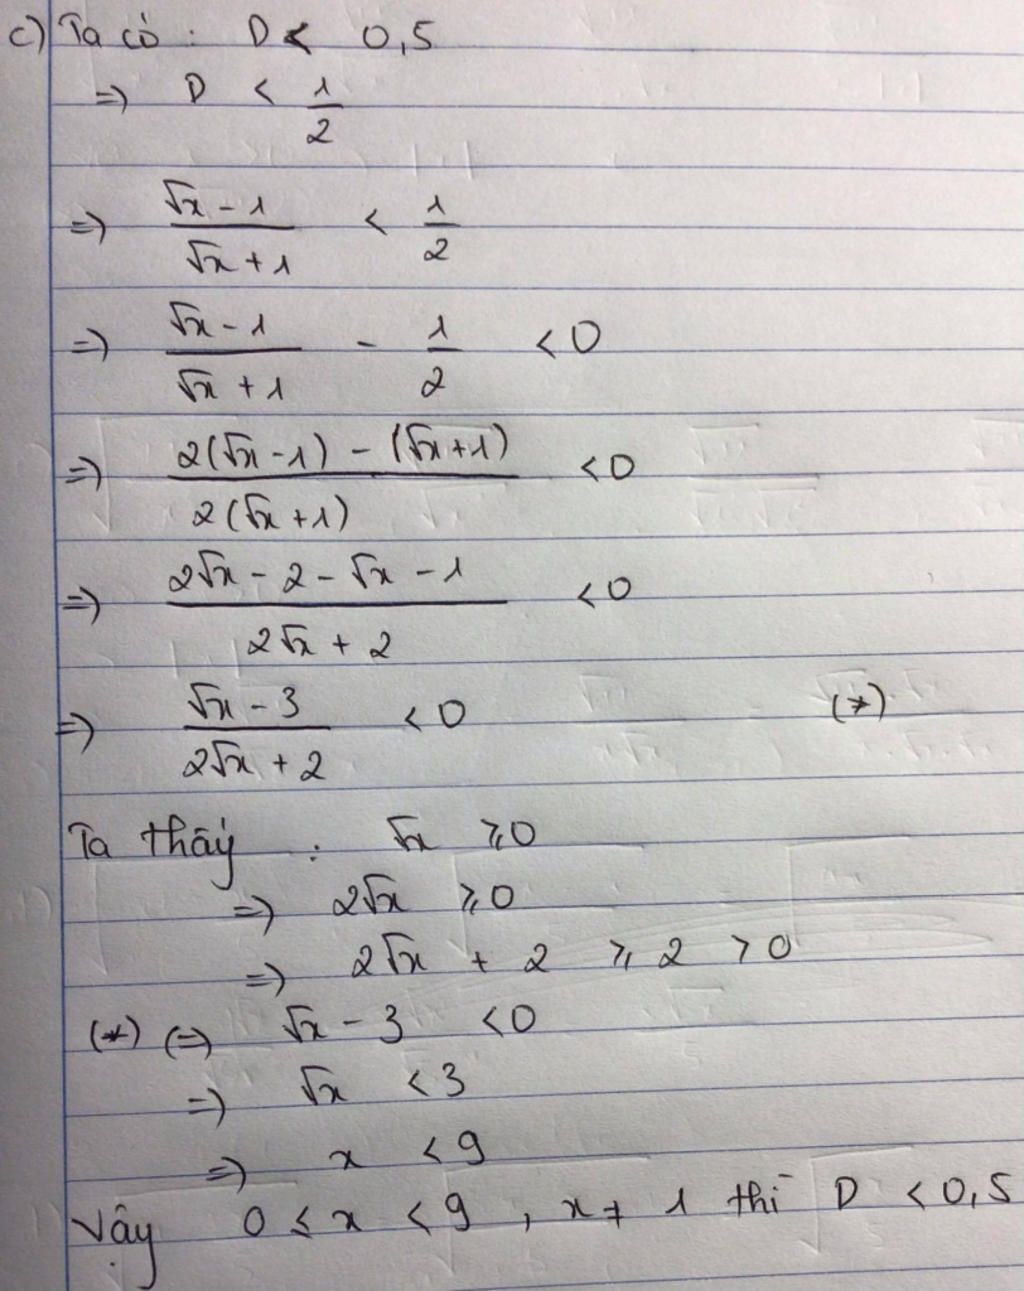 c) Ta có : D < 0,5
=> D < 1/2
=> (√x - 1)/(√x + 1) < 1/2
=> (√x - 1)/(√x + 1) - 1/2 < 0
=> (2(√x - 1) - (√x + 1))/(2(√x + 1)) < 0
=> (2√x - 2 - √x - 1)/(2√x + 2) < 0
=> (√x - 3)/(2√x + 2) < 0 (*)
Ta thấy : √x ⩾ 0
=> 2√x ⩾ 0
=> 2√x + 2 ⩾ 2 > 0
(*) (=> √x - 3 < 0
=> √x < 3
=> x < 9
Vậy 0 ≤ x < 9 , x ≠ 1 thì D < 0,5